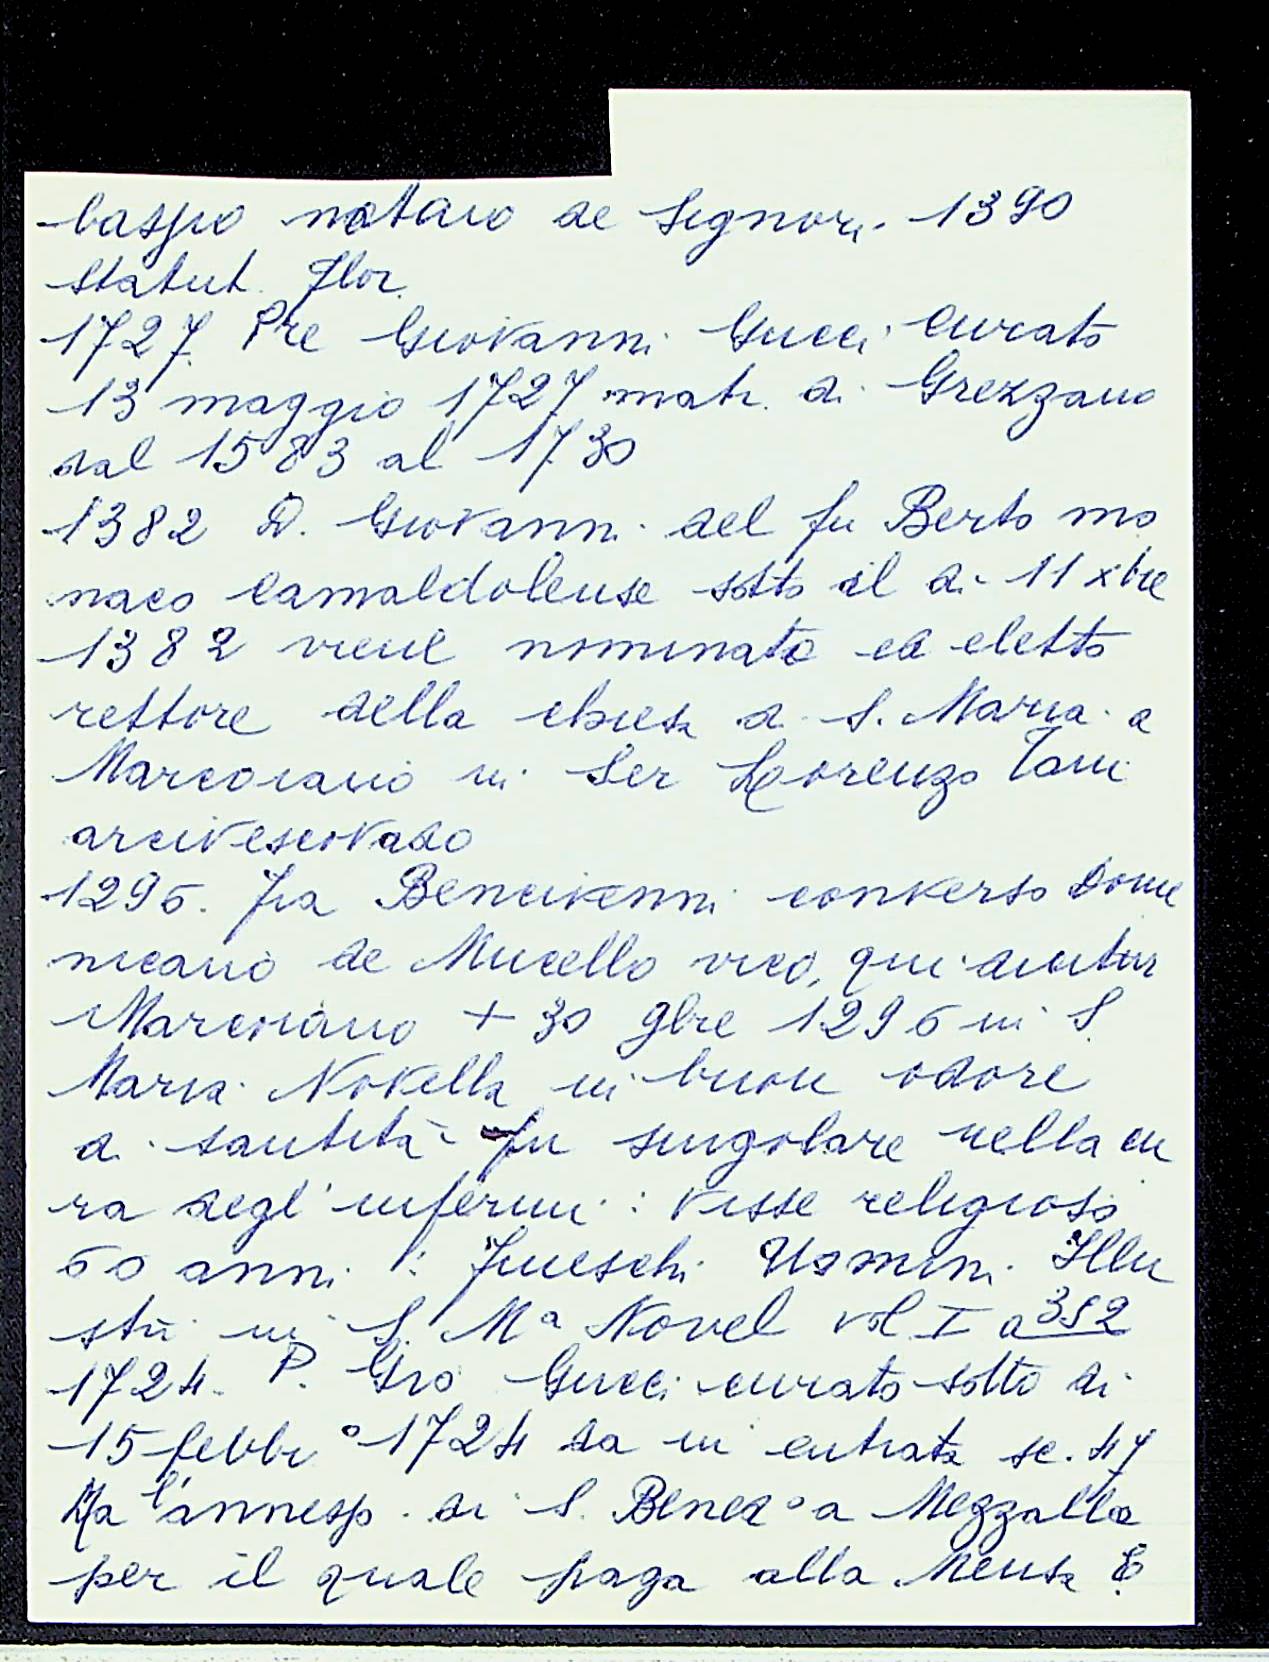 notaro de Signori. 1390
Statut. Flor.
1727. Pre Giovanni Gucci Curato
13 maggio 1727 matr. di Grezzano
dal 1583 al 1730
1382 D. Giovanni del fu Berto mo
naco Camaldolense sotto il di 11 xbre
1382 viene nominato ed eletto
rettore della chiesa di S. Maria a
Marcoiano in Ser Lorenzo Tani
arcivescovado
1296. Fra Bencivenni converso Dome
nicano de Mucello vico, qui dicitur
Marcoiano + 30 9bre 1296 in S
Maria Novella in buon odore
di santità fu singolare nella cu
ra degl'infermi: visse religioso
60 anni: Fineschi Uomini Illu
stri in S. Mª Novel vol I a 352
1724. P. Gio Gucci curato sotto di
15 febbr° 1724 da in entrata sc. 47
Ha l'anness. di S. Bened° a Mezzalla
per il quale paga alla Mensa £